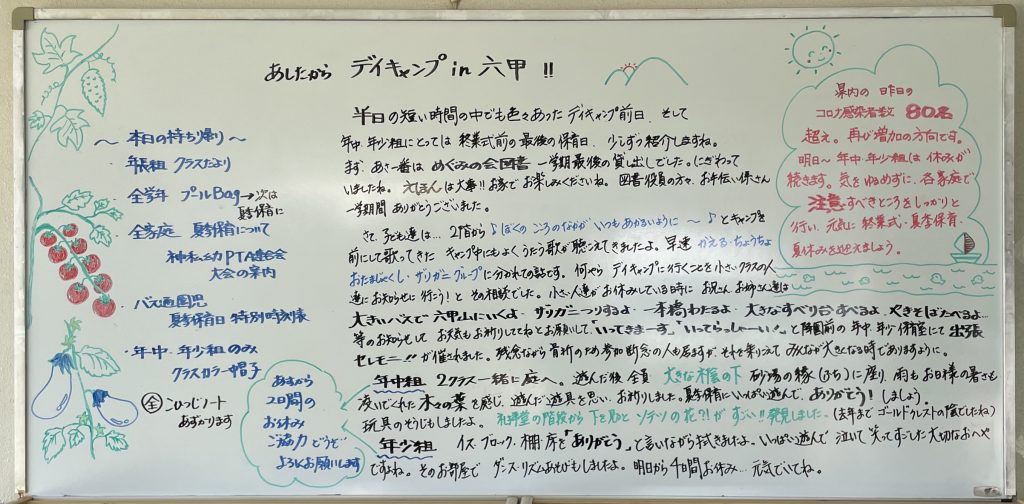 あしたから デイキャンプ in 六甲 !!
～ 本日の持ち帰り ～
年長組 クラスだより
全学年 プールBag→次は
夏季保育に
全家庭 夏季保育について
神私幼PTA連合会
大会の案内
バス通園児
夏季保育日 特別時刻表
年中 年少組のみ
クラスカラー帽子
全 こひつじノート
あずかります
あすから
2日間の
お休み
ご協力どうぞ
よろしくお願いします
半日の短い時間の中でも色々あった デイキャンプ前日、そして
年中、年少組にとっては 終業式前の最後の保育日、少しずつ紹介しますね。
まず、あさ一番は めぐみの会図書 一学期最後の貸し出しでした。にぎわって
いましたね。えほんは大事!! お家で お楽しみくださいね。図書役員の方々、お手伝い係さん
一学期間 ありがとうございました。
さて、子ども達は… 2階から ♪ぼくの こころのなかが いつもあかるいように～♪ とキャンプを
前にして歌ってきた キャンプ中にもよくうたう歌が聴こえてきましたよ。早速 かえる・ちょうちょ
おたまじゃくし・ザリガニ グループに分かれての話です。何やら デイキャンプに行くことを 小さいクラスの人
達にお知らせに 行こう！と その相談でした。小さい人達が お休みしている時に お兄さん お姉さん達は
大きいバスで 六甲山にいくよ・ザリガニつりするよ・一本橋わたるよ・大きなすべり台すべるよ・やきそばたべるよ…
等のお知らせして お天気もお祈りしててねとお願いして、「いってきまーす」「いってらっしゃーい!」と降園前の 年中、年少保育室にて 出張
セレモニー!! が催されました。残念ながら 骨折のため 参加断念の人も居ますが、それを乗りこえて みんなが大きくなる時でありますように。
年中組 2クラス一緒に庭へ。遊んだ後 全員 大きな木陰の下 砂場の縁(ふち)に座り、雨もお日様の暑さも
凌いでくれた 木々の葉を感じ、遊んだ遊具を思い、お祈りしました。夏季保育に いっぱい遊んで、ありがとう！しましょう。
玩具のそうじもしましたよ。礼拝堂の階段から 下を見ると ソテツの花?! が すごい!! 発見しました。(去年まで ゴールドクレストの陰でしたね)
年少組 イス・ブロック・棚・床を「ありがとう」と言いながら拭きましたよ。いっぱい遊んで 泣いて 笑ってすごした大切なおへや
ですよね。そのお部屋で ダンス・リズムあそびもしましたよ。明日から4日間お休み… 元気でいてね。
県内の 昨日の
コロナ感染者数 80名
超え。再び増加の方向です。
明日～ 年中・年少組は 休みが
続きます。気をゆるめずに、各家庭で
注意すべきところをしっかりと
行い、元気に 終業式・夏季保育・
夏休みを迎えましょう。